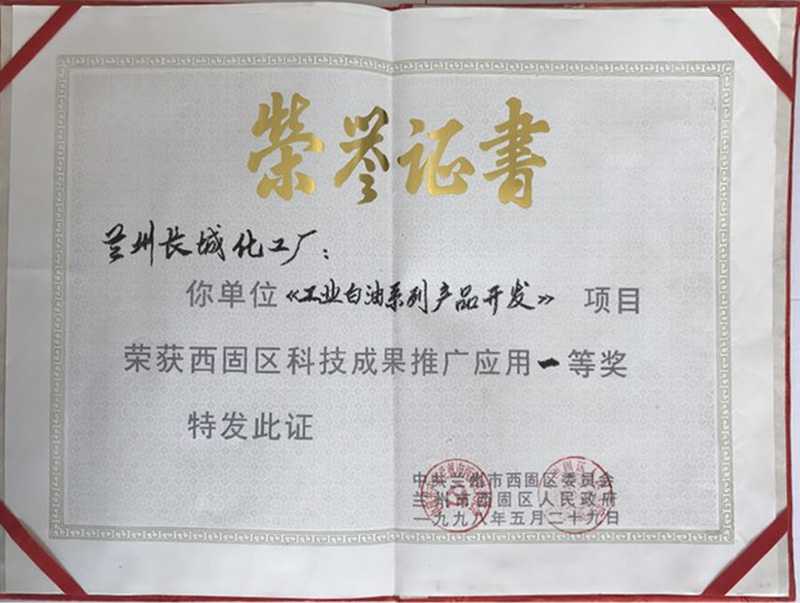 荣誉证书
兰州长城化工厂：
你单位《工业白油系列产品开发》项目
荣获西固区科技成果推广应用一等奖
特发此证
中共兰州市西固区委员会
兰州市西固区人民政府
一九九八年五月二十九日